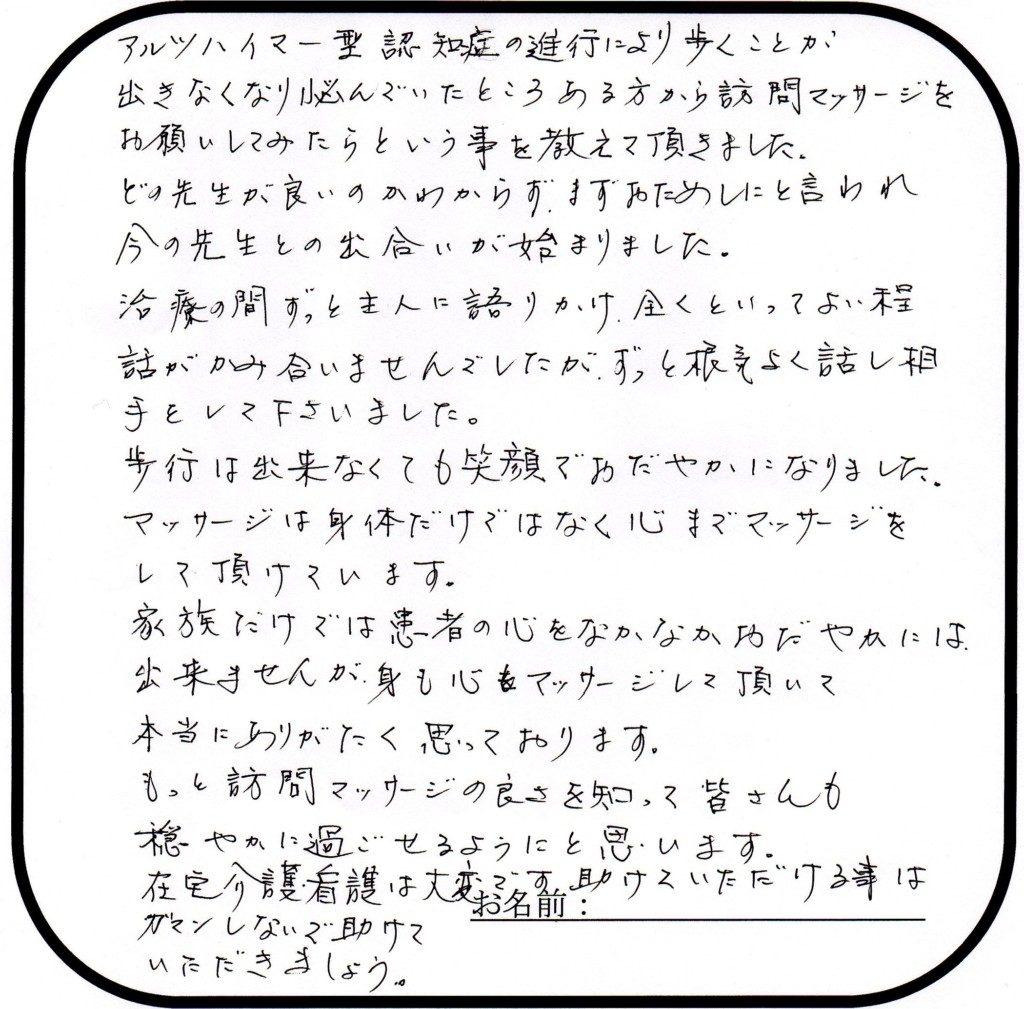 アルツハイマー型認知症の進行により歩くことが
出きなくなり悩んでいたところある方から訪問マッサージを
お願いしてみたらという事を教えて頂きました。
どの先生が良いのかわからず、まずおためしにと言われ
今の先生との出合いが始まりました。
治療の間ずっと主人に語りかけ、全くといってよい程
話がかみ合いませんでしたが、ずっと根気よく話し相
手をして下さいました。
歩行は出来なくても笑顔でおだやかになりました。
マッサージは身体だけではなく心までマッサージを
して頂けています。
家族だけでは患者の心をなかなかおだやかには
出来ませんが、身も心もマッサージして頂いて
本当にありがたく思っております。
もっと訪問マッサージの良さを知って皆さんも
穏やかに過ごせるようにと思います。
在宅介護・看護は大変です。助けていただける事は
お名前:
ガマンしないで助けて
いただきましょう。